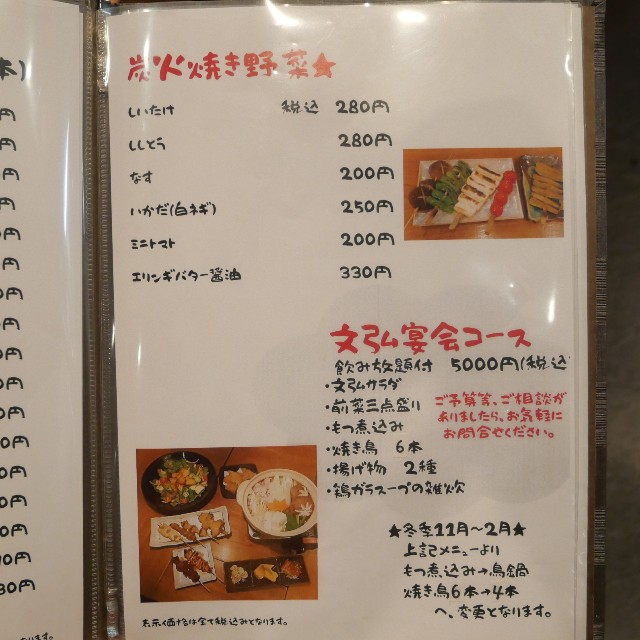 本)
円
円
円
円
0円
0円
0円
0円
0円
0円
0円
0円
0円
0円
0円
30円
炭火焼き野菜★
しいたけ 税込 280円
ししとう 280円
なす 200円
いかだ(白ネギ) 250円
ミニトマト 200円
エリンギバター醤油 330円
文弘宴会コース
飲み放題付 5000円(税込
・文弘サラダ
・前菜三点盛り
・もつ煮込み
・焼き鳥 6本
・揚げ物 2種
・鶏ガラスープの雑炊
ご予算等、ご相談が
ありましたら、お気軽に
お問合せください。
★冬季11月~2月★
上記メニューより
もつ煮込み→鳥鍋
焼き鳥6本→4本
へ、変更となります。
表示価格は全て税込みとなります。
ます。